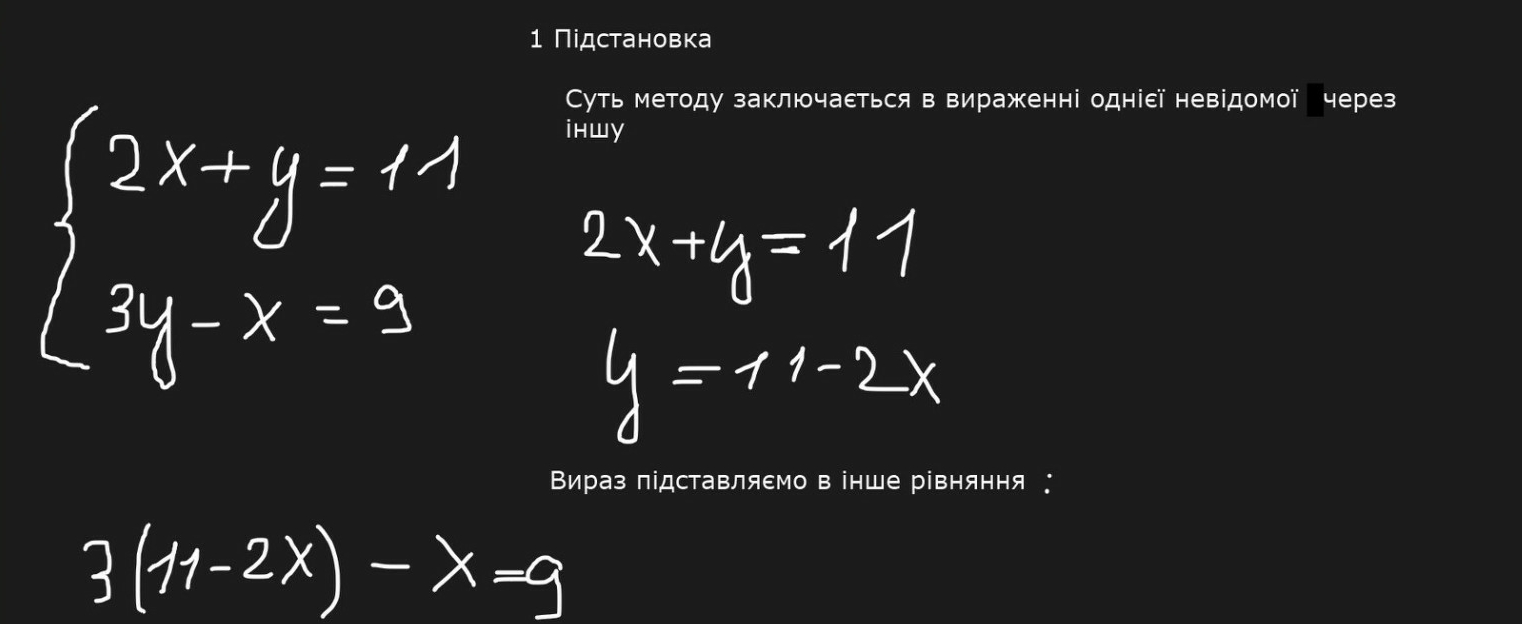 1 Підстановка
Суть методу заключається в вираженні однієї невідомої через
іншу
2x+y=11
3y-x=9
2x+y=11
y=11-2x
Вираз підставляємо в інше рівняння :
3(11-2x)-x=9